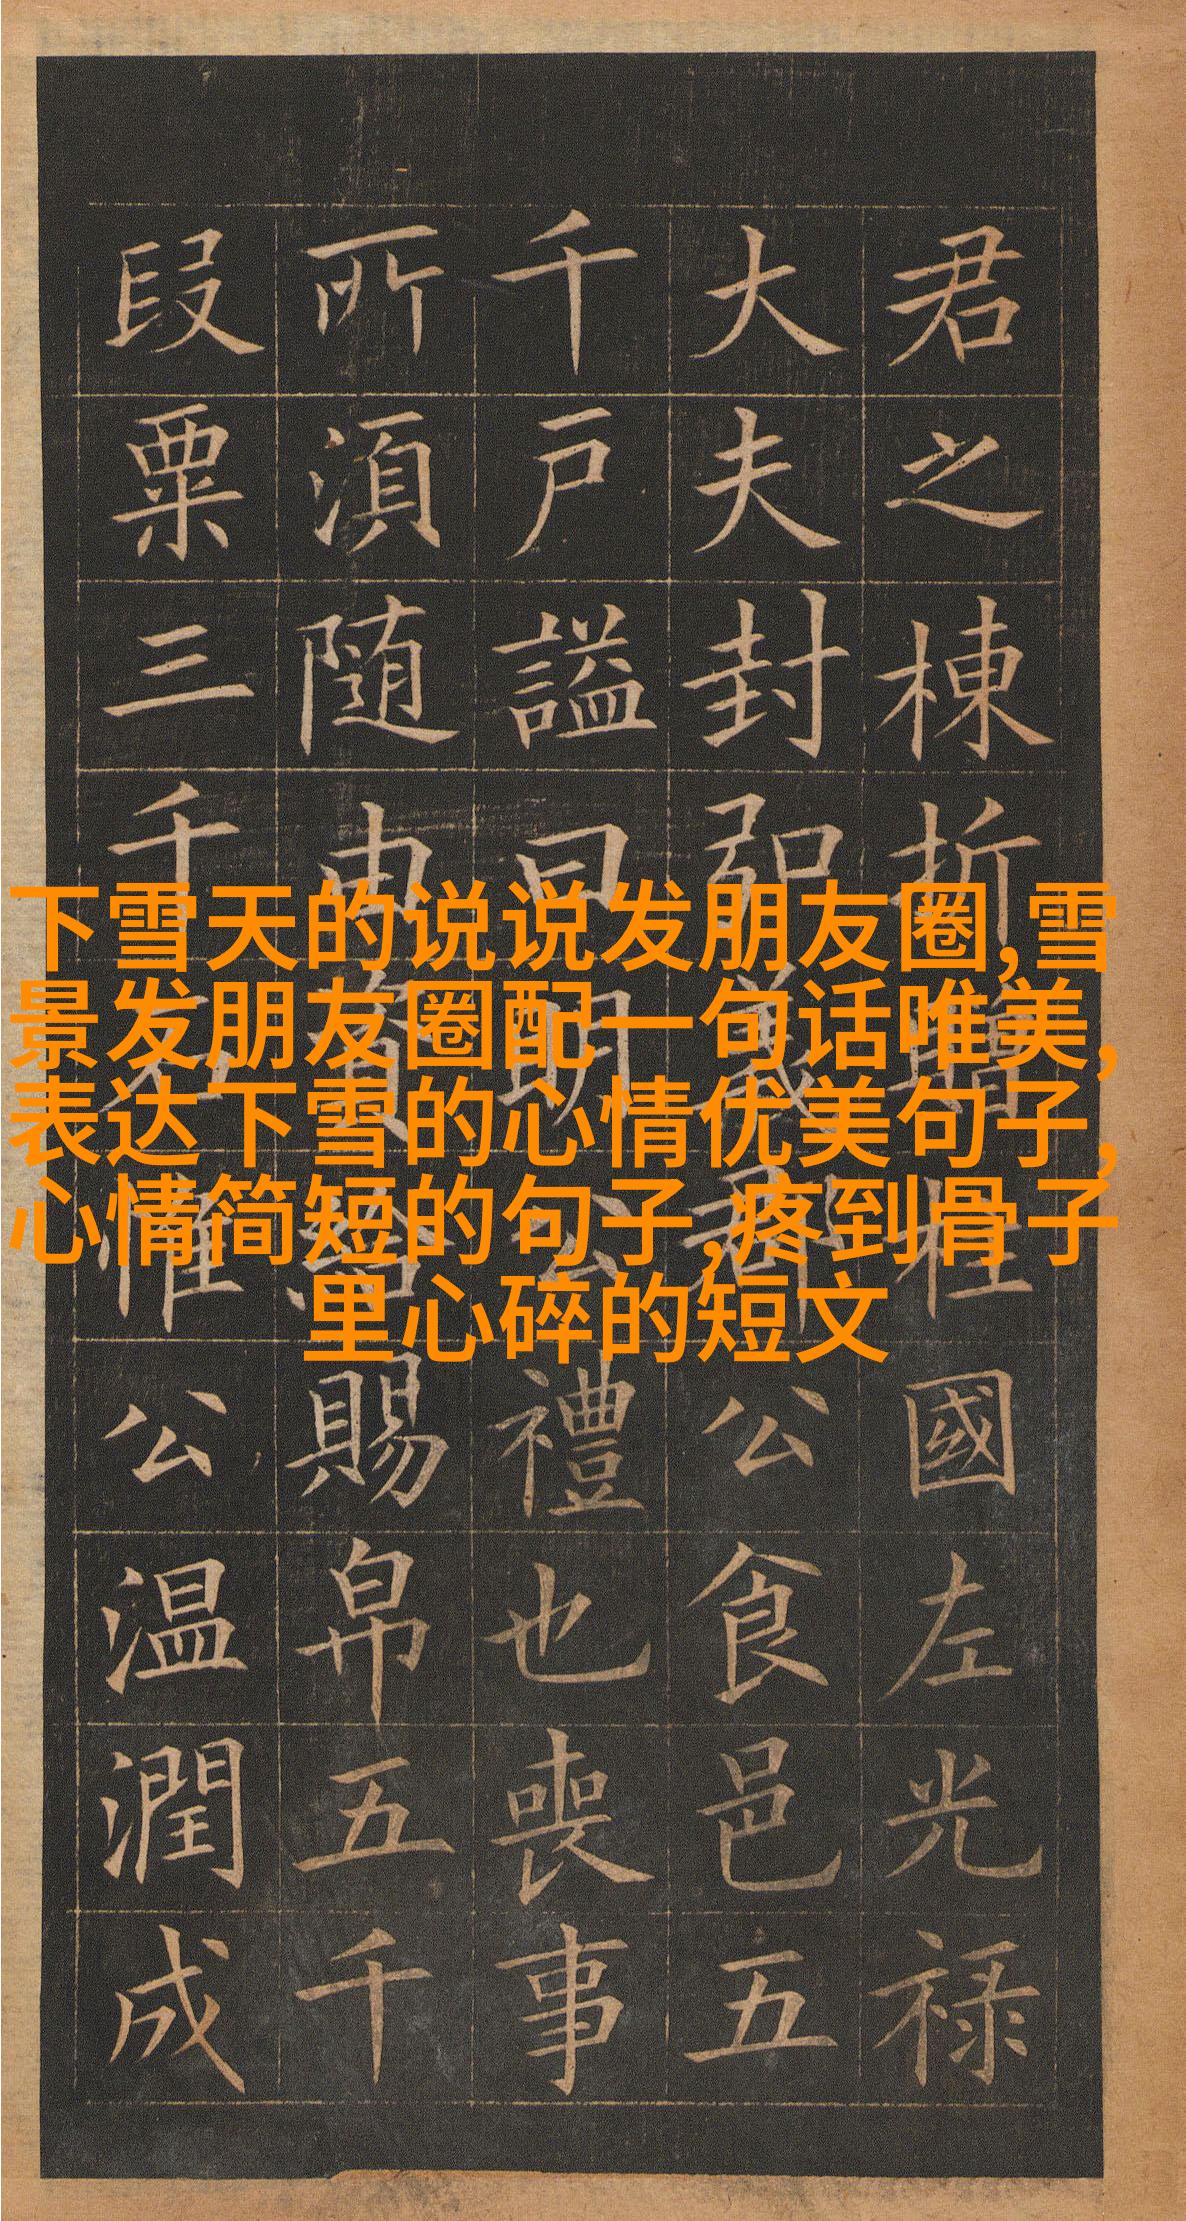 君之棟折贈柱國左光禄
大夫封弘義郡公食邑五
千戶謚曰明公禮也喪事
所湏随由資給賜帛五千
段粟三千石惟公温潤成
下雪天的说说发朋友圈,雪
景发朋友圈配一句话唯美,
表达下雪的心情优美句子,
心情简短的句子,疼到骨子
里心碎的短文